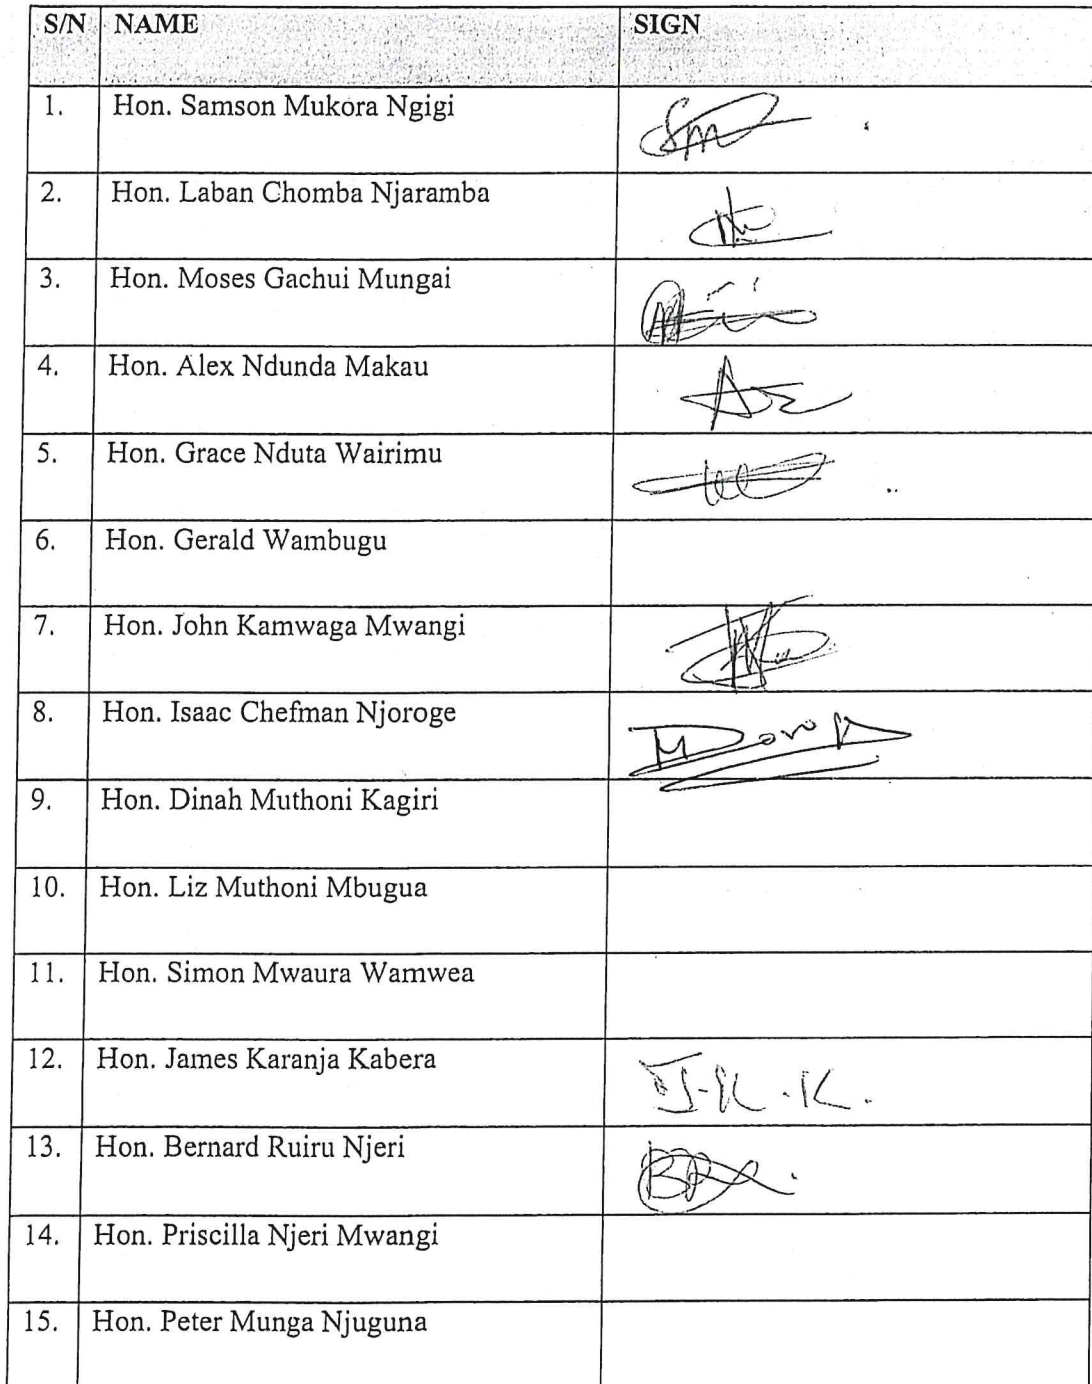 S/N NAME SIGN
1. Hon. Samson Mukora Ngigi
2. Hon. Laban Chomba Njaramba
3. Hon. Moses Gachui Mungai
4. Hon. Alex Ndunda Makau
5. Hon. Grace Nduta Wairimu
6. Hon. Gerald Wambugu
7. Hon. John Kamwaga Mwangi
8. Hon. Isaac Chefman Njoroge
9. Hon. Dinah Muthoni Kagiri
10. Hon. Liz Muthoni Mbugua
11. Hon. Simon Mwaura Wamwea
12. Hon. James Karanja Kabera J.K.K.
13. Hon. Bernard Ruiru Njeri
14. Hon. Priscilla Njeri Mwangi
15. Hon. Peter Munga Njuguna